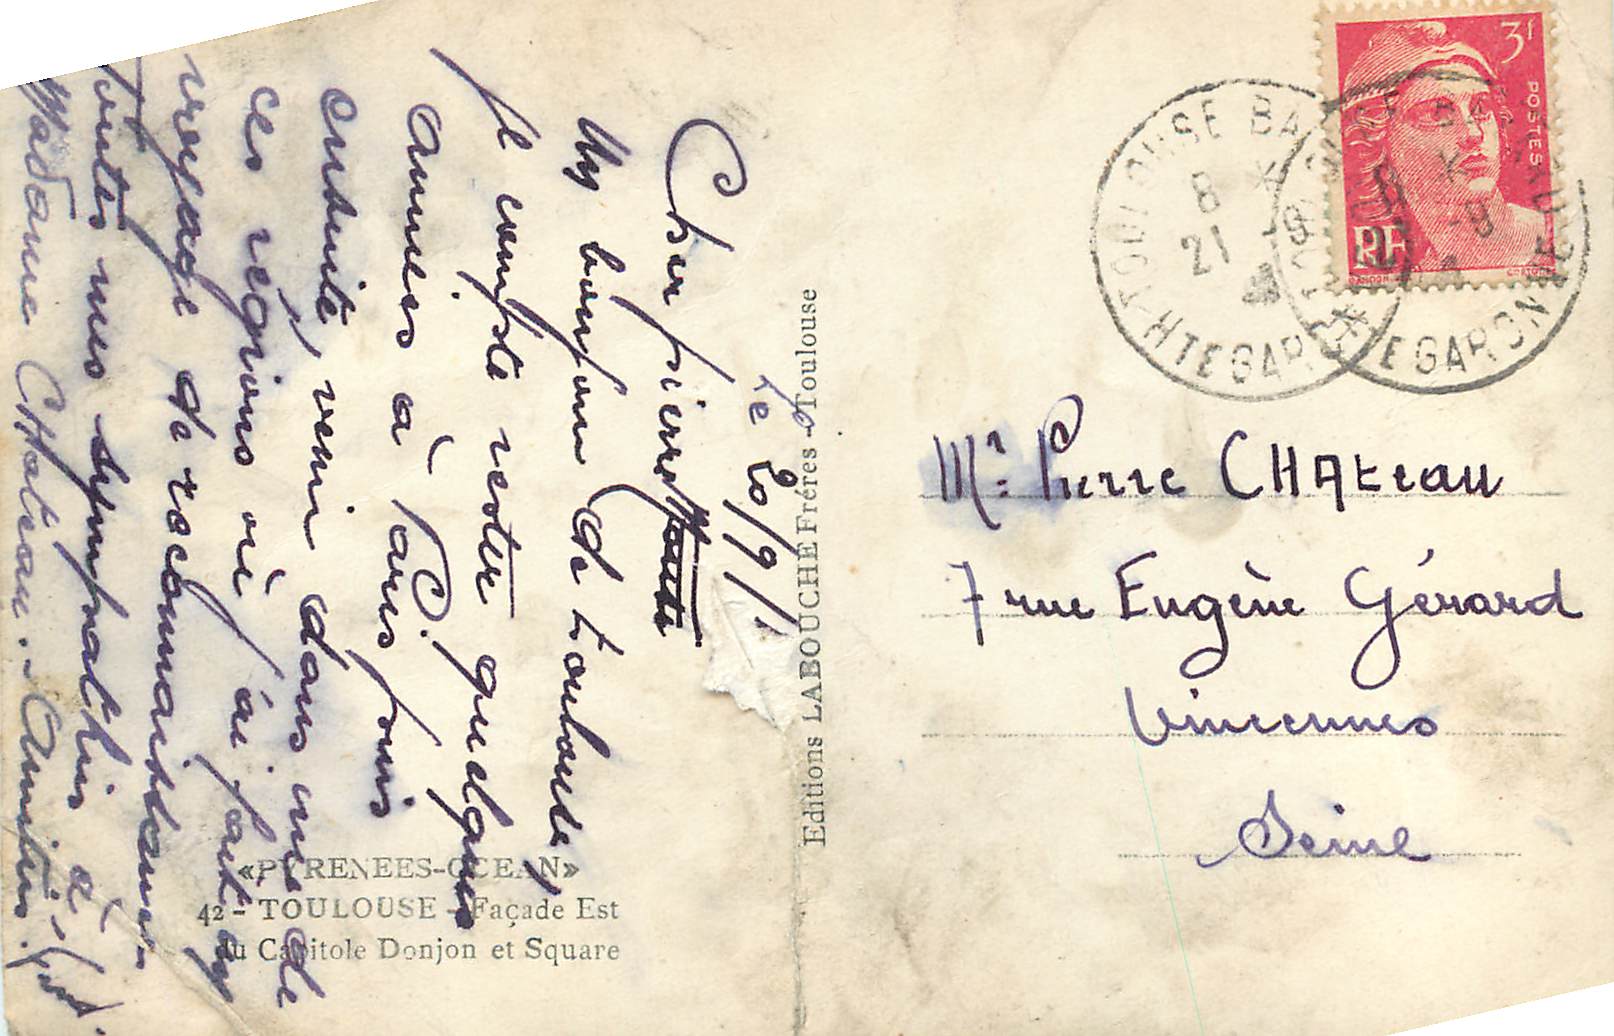 Le 20/9/
Cher Pierre
Un bonjour de toulouse,
Je compte rester quelques
années à Paris puis
ensuite, venir dans une de
ces régions où j'ai fait un
voyage de reconnaissance
Toutes mes sympathies à
Madame CHateau. Amitiés.
Mr. Pierre CHAteau
7 rue Eugène Gérard
Vincennes
Seine
Editions LABOUCHE Frères - Toulouse
«PYRENEES-OCEAN»
42 - TOULOUSE - Façade Est
du Capitole Donjon et Square
3f
POSTES
RF
TOULOUSE
8 *
21 -9
HTE GARONNE